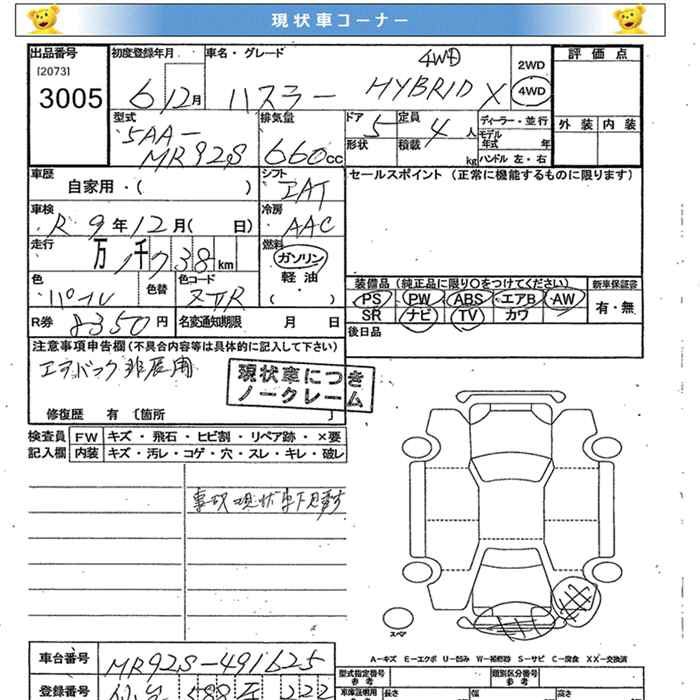 現状車コーナー
出品番号 初度登録年月 車名・グレード 4WD 2WD 評価点
[2073]
3005 6 12月 ハスラー HYBRID X 4WD
型式 排気量 ドア 定員 ディーラー・並行 外装 内装
5AA- 5 4人 モデル年式 年
MR92S 660cc 形状 積載 kg ハンドル 左・右
車歴 シフト セールスポイント (正常に機能するものに限ります)
自家用・( )
車検 冷房
R 9年12月( 日) AAC
走行 燃料
万 千 38km ガソリン
色 色替 色コード 軽油 装備品 (純正品に限り○をつけてください) 新車保証書
( ・ ) PS PW ABS エアB AW 有・無
SR ナビ TV カワ
R券 8350円 名変通知期限 月 日 後日品
注意事項申告欄(不具合内容等は具体的に記入して下さい)
現状車につき
ノークレーム
修復歴 有 〔箇所
検査員 FW キズ・飛石・ヒビ割・リペア跡・×要
記入欄 内装 キズ・汚レ・コゲ・穴・スレ・キレ・破レ
スペア
A-キズ E-エクボ U-凹み W-補修跡 S-サビ C-腐食 XX-交換済
車台番号 MR92S-491625 型式指定番号 類別区分番号
登録番号 長さ 幅 高さ